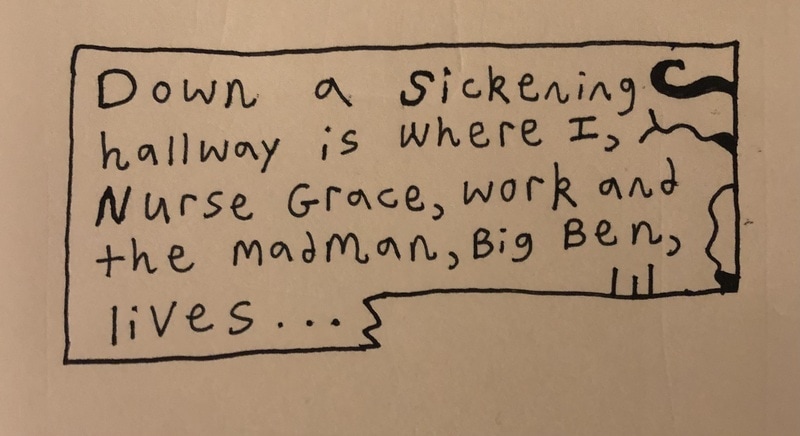 Down a Sickening
hallway is where I,
Nurse Grace, work and
the madman, Big Ben,
lives...